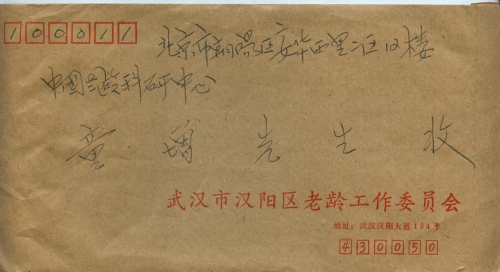 100011
北京市朝阳区安华西里一区13楼
中国老龄科研中心
先生 收
武汉市汉阳区老龄工作委员会
地址：武汉汉阳大道194号
430050